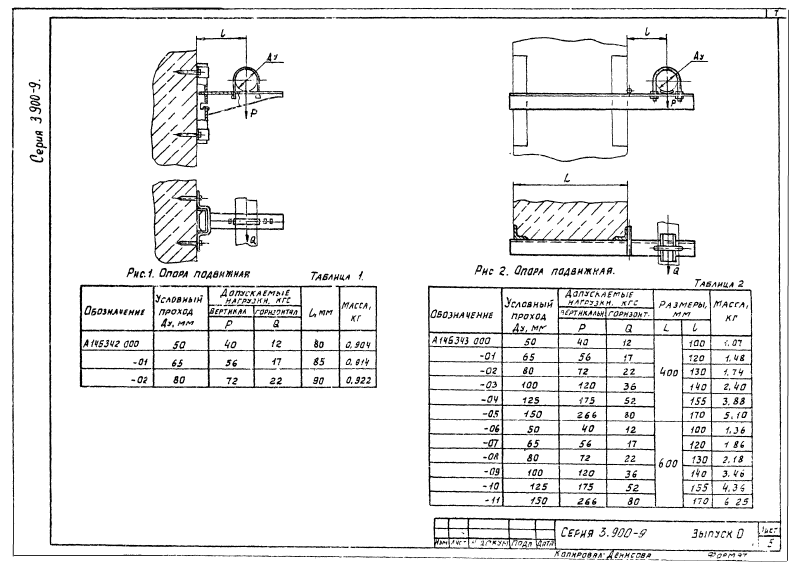 Т
Серия 3.900-9.
L
Ду
P
Q
Рис.1. Опора подвижная
Таблица 1.
Обозначение | Условный проход Ду, мм | Допускаемые нагрузки, кгс | L, мм | Масса, кг
вертикал P | горизонтал Q
А14Б342 000 | 50 | 40 | 12 | 80 | 0,904
-01 | 65 | 56 | 17 | 85 | 0,914
-02 | 80 | 72 | 22 | 90 | 0,922
l
Ду
P
L
Q
Рис 2. Опора подвижная.
Таблица 2
Обозначение | Условный проход Ду, мм | Допускаемые нагрузки, кгс | Размеры, мм | Масса, кг
вертикальн. P | горизонт. Q | L | l
А14Б343 000 | 50 | 40 | 12 | 400 | 100 | 1,07
-01 | 65 | 56 | 17 | 120 | 1,48
-02 | 80 | 72 | 22 | 130 | 1,74
-03 | 100 | 120 | 36 | 140 | 2,40
-04 | 125 | 175 | 52 | 155 | 3,88
-05 | 150 | 266 | 80 | 170 | 5,10
-06 | 50 | 40 | 12 | 600 | 100 | 1,36
-07 | 65 | 56 | 17 | 120 | 1 86
-08 | 80 | 72 | 22 | 130 | 2,18
-09 | 100 | 120 | 36 | 140 | 3,46
-10 | 125 | 175 | 52 | 155 | 4,36
-11 | 150 | 266 | 80 | 170 | 6 25
Изм Лист № докум Подп Дата
Серия 3.900-9 Выпуск 0
Лист
5
Копировал Денисова Формат